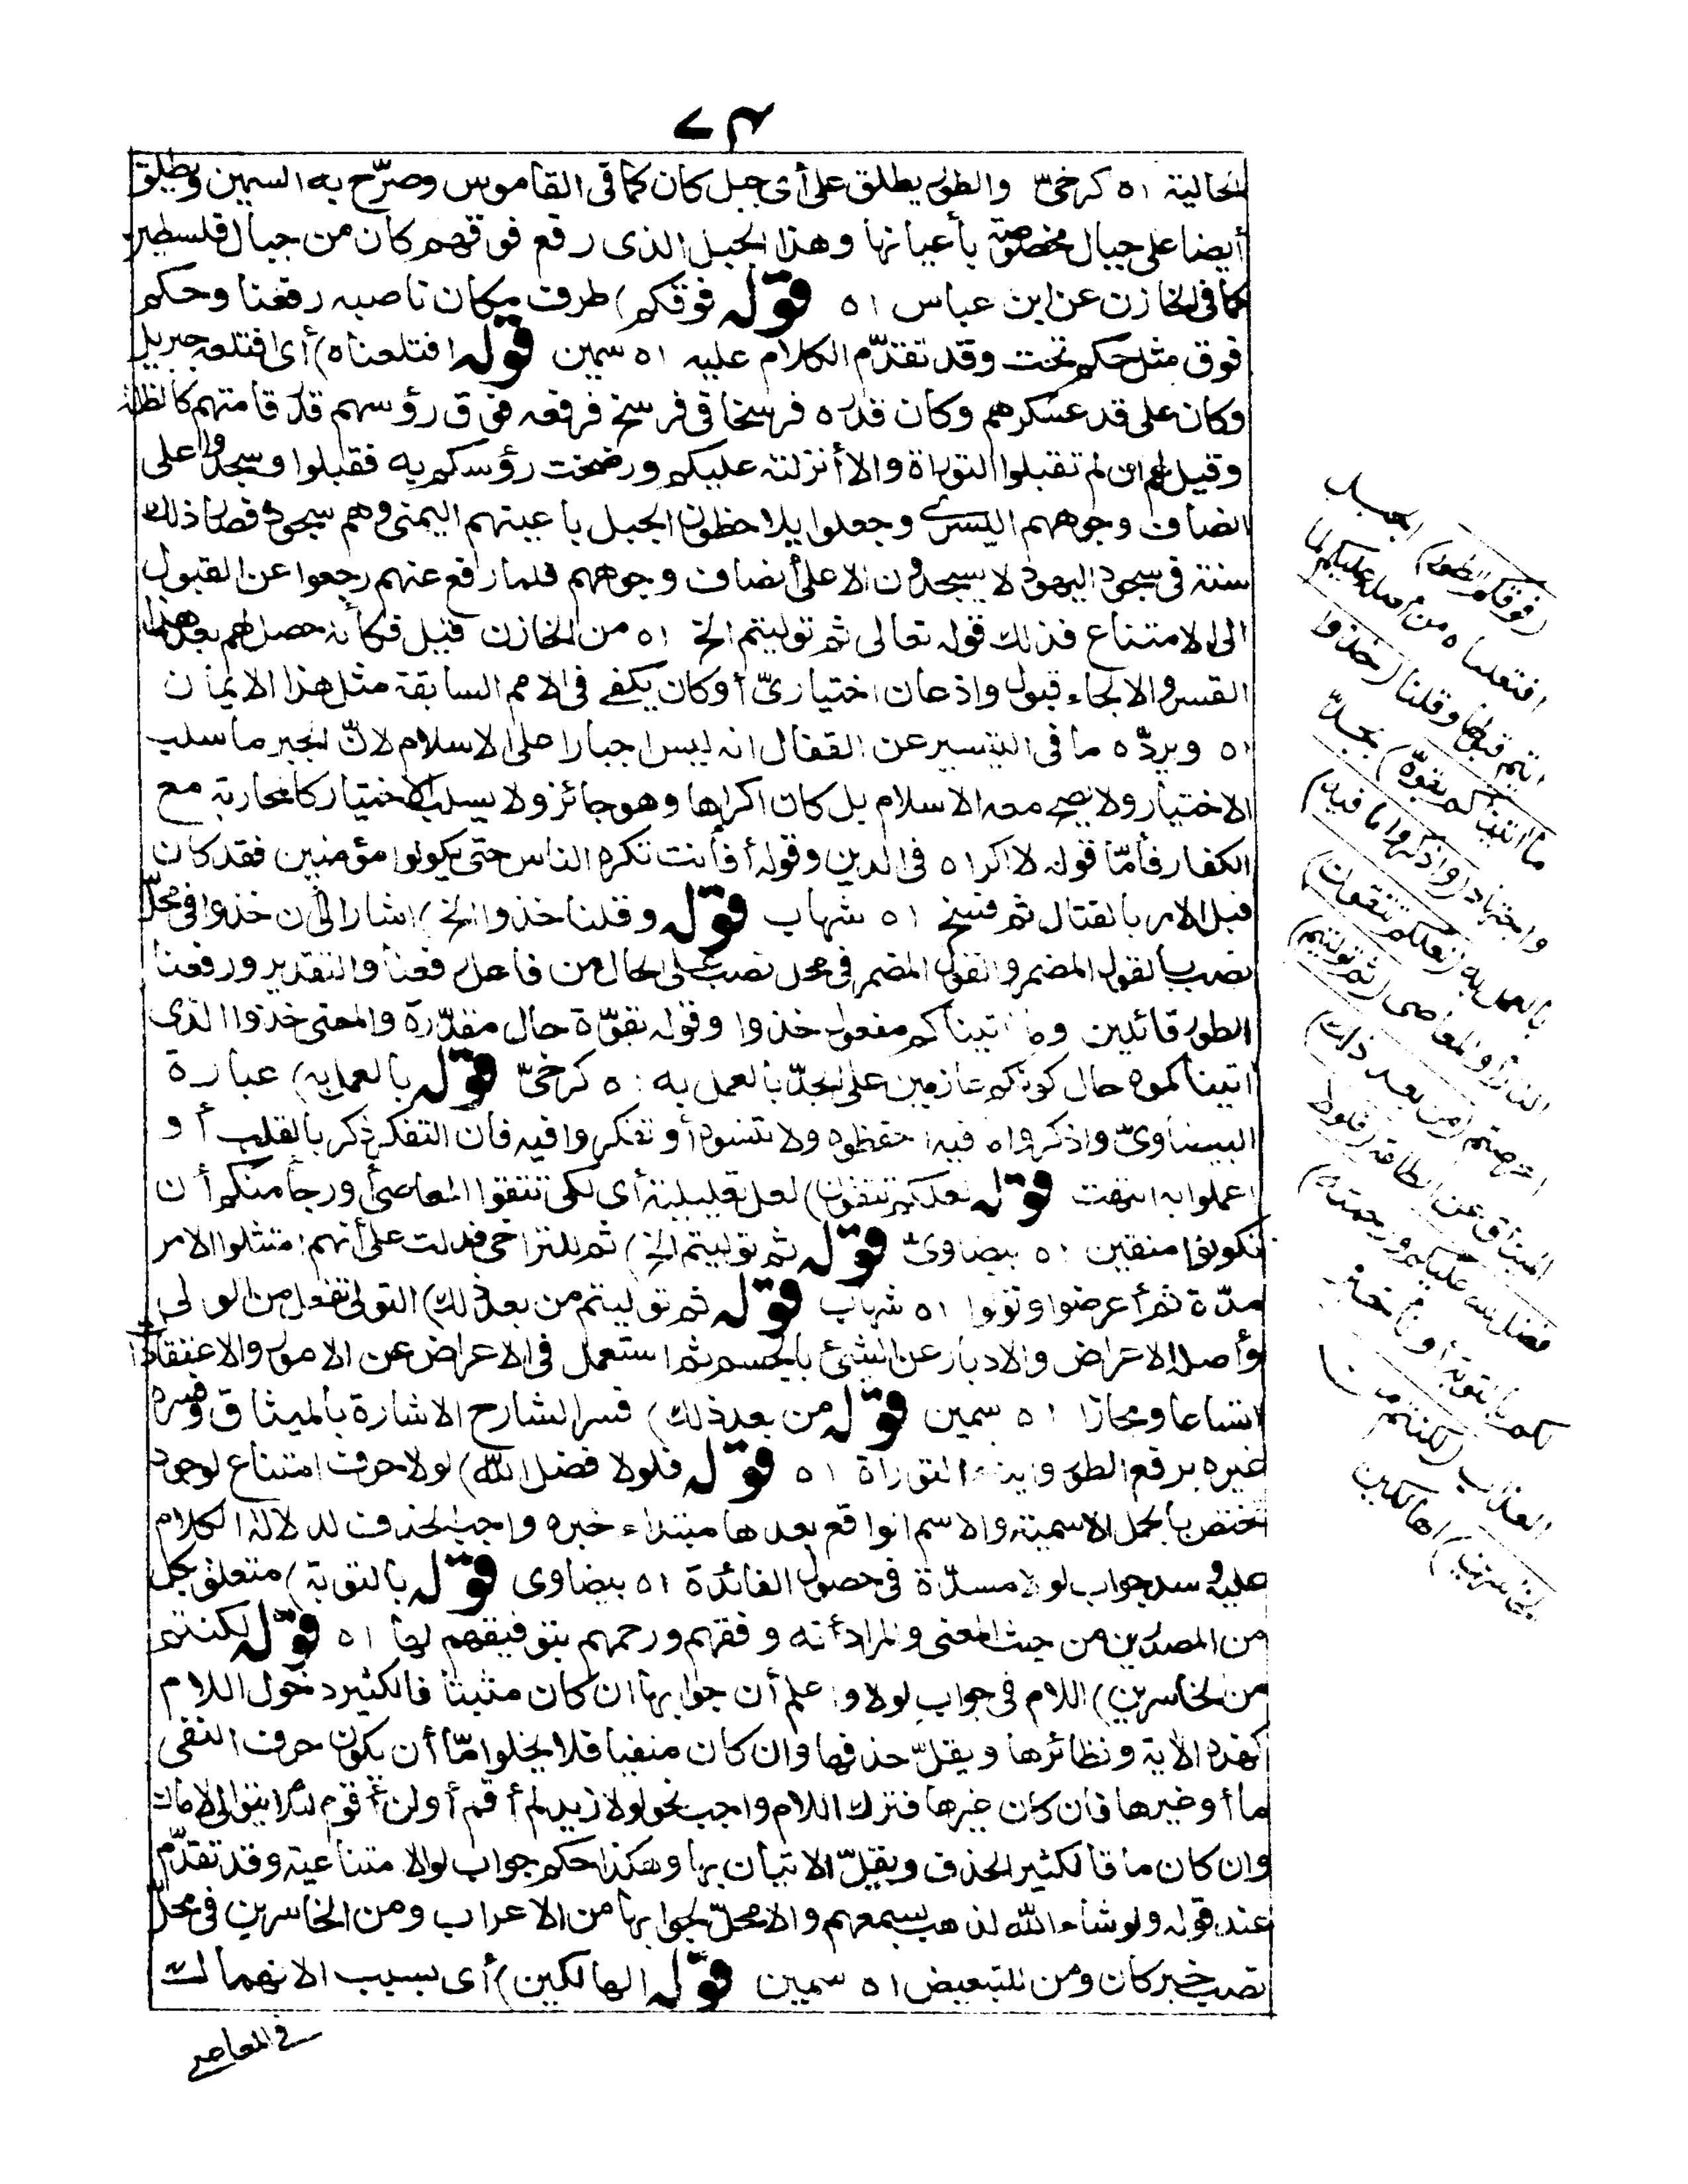 ٧٣
الحالية اه كرخىّ والطور يطلق على أى جبل كان كما فى القاموس وصرّح به السمين ويطلق
أيضا على جبال مخصوصة بأعيانها وهذا الجبل الذى رفع فوقهم كان من جبال فلسطين
كما فى الخازن عن ابن عباس اه قوله فوقكم) ظرف مكان ناصبه رفعنا وحكم
فوق مثل حكم تحت وقد تقدّم الكلام عليه اه سمين قوله اقتلعناه) أى اقتلعه جبريل
وكان على قدر عسكرهم وكان قدره فرسخا فى فرسخ فرفعه فوق رؤسهم قدر قامتهم كالظلة
وقيل لهم ان لم تقبلوا التوراة والا أنزلته عليكم ورضخت رؤسكم به فقبلوا وسجدوا على
انصاف وجوههم اليسرى وجعلوا يلاحظون الجبل باعينهم اليمنى وهم سجود فصار ذلك
سنة فى سجود اليهود لا يسجدون الا على أنصاف وجوههم فلما رفع عنهم رجعوا عن القبول
الى الامتناع فذلك قوله تعالى ثم توليتم الخ اه من الخازن قيل فكأنه حصل لهم بعد هذا
القسر والالجاء قبول واذعان اختيارىّ أو كان يكفى فى الامم السابقة مثل هذا الايمان
اه ويردّه ما فى التيسير عن القفال انه ليس اجبارا على الاسلام لانّ الجبر ما سلب
الاختيار ولا يصح معه الاسلام بل كان اكراها وهو جائز ولا يسلب الاختيار كالمحاربة مع
الكفار فأمّا قوله لا اكراه فى الدين وقوله أفأنت تكره الناس حتى يكونوا مؤمنين فقد كان
قبل الامر بالقتال ثم نسخ اه شهاب قوله وقلنا خذوا الخ) اشار الى أن خذوا فى محلّ
نصب بالقول المضمر والقول المضمر فى محل نصب على الحال من فاعل رفعنا والتقدير ورفعنا
الطور قائلين وما آتيناكم مفعول خذوا وقوله بقوّة حال مقدّرة والمعنى خذوا الذى
آتيناكموه حال كونكم عازمين على الجدّ بالعمل به اه كرخىّ قوله بالعمل به) عبارة
البيضاوىّ واذكروا ما فيه احفظوه ولا تنسوه أو تفكروا فيه فان التفكر ذكر بالقلب أو
اعملوا به انتهت قوله لعلكم تتقون) لعل تعليلية أى لكى تتقوا المعاصى أو رجاء منكم أن
تكونوا متقين اه بيضاوىّ قوله ثم توليتم الخ) ثم للتراخى فدلت على أنهم امتثلوا الامر
مدّة ثم أعرضوا وتولوا اه شهاب قوله ثم توليتم من بعد ذلك) التولى تفعل من الولى
وأصله الاعراض والادبار عن الشئ بالجسم ثم استعمل فى الاعراض عن الامور والاعتقادات
اتساعا ومجازا اه سمين قوله من بعد ذلك) فسر الشارح الاشارة بالميثاق وفسره
غيره برفع الطور وايتاء التوراة اه قوله فلولا فضل الله) لولا حرف امتناع لوجود
تختص بالجمل الاسمية والاسم الواقع بعدها مبتداء خبره واجب الحذف لدلالة الكلام
عليه وسد جواب لولا مسدّه فى حصول الفائدة اه بيضاوى قوله بالتوبة) متعلق بكل
من المصدرين من حيث المعنى والمراد أنه وفقهم ورحمهم بتوفيقهم لها اه قوله لكنتم
من الخاسرين) اللام فى جواب لولا واعلم أن جوابها ان كان مثبتا فالكثير دخول اللام
كهذه الآية ونظائرها ويقلّ حذفها وان كان منفيا فلا يخلو امّا أن يكون حرف النفى
ما أو غيرها فان كان غيرها فترك اللام واجب نحو لولا زيد لم أقم أو لن أقوم لئلا يتوالى لامان
وان كان ما فالكثير الحذف ويقلّ الاتيان بها وهكذا حكم جواب لو الامتناعية وقد تقدّم
عند قوله ولو شاء الله لذهب بسمعهم ولا محلّ لجوابها من الاعراب ومن الخاسرين فى محلّ
نصب خبر كان ومن للتبعيض اه سمين قوله الهالكين) أى بسبب الانهماك
فى المعاصى
(فوقكم الطور) الجبل
اقتلعناه من أصله عليكم لما
ابيتم قبولها وقلنا (خذوا
ما آتيناكم بقوّة) بجدّ
واجتهاد (واذكروا ما فيه)
بالعمل به (لعلكم تتقون)
النار أو المعاصى (ثم توليتم)
اعرضتم (من بعد ذلك)
الميثاق عن الطاعة (فلولا
فضل الله عليكم ورحمته)
لكم بالتوبة أو تأخير
العذاب (لكنتم من
الخاسرين) الهالكين